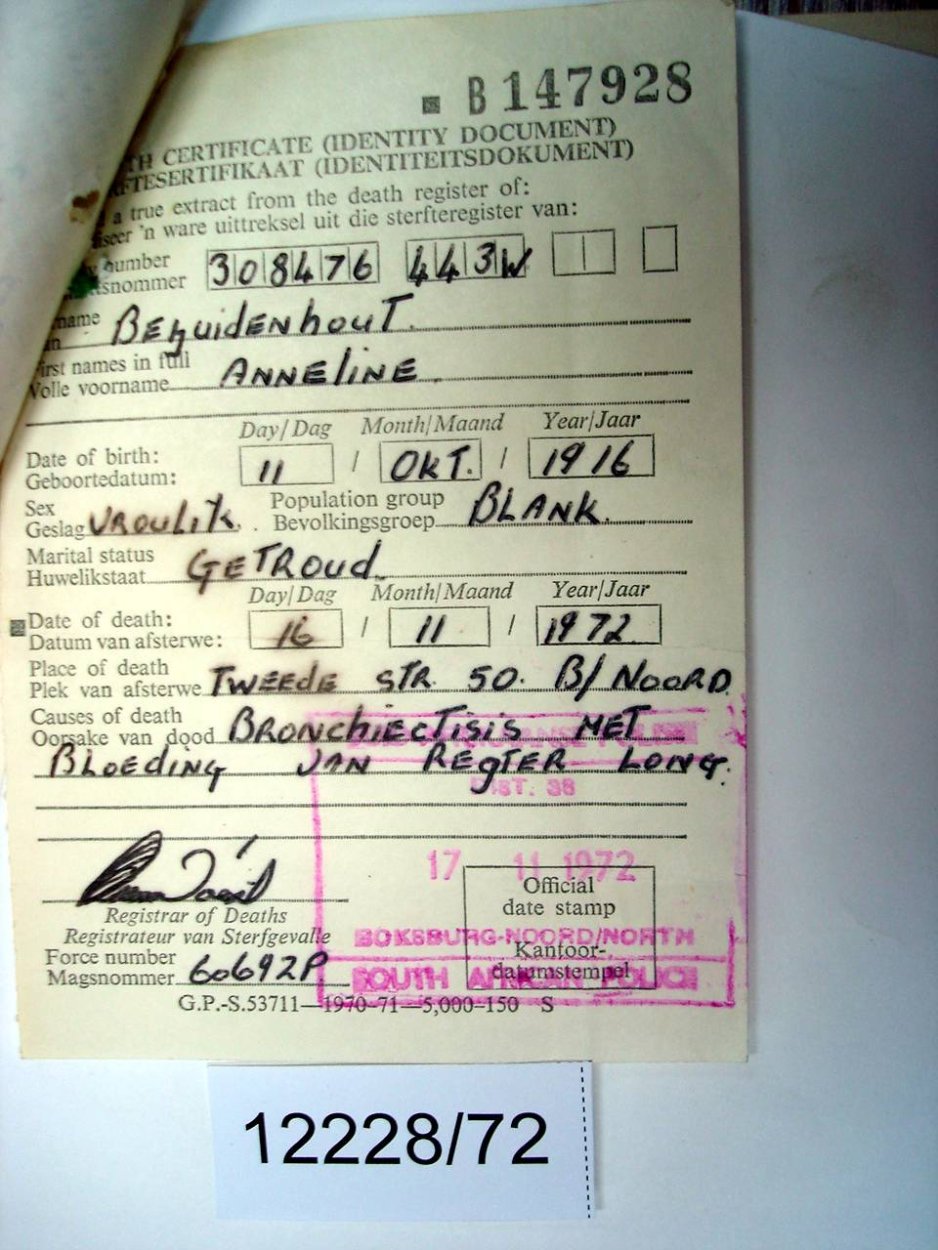 B147928
TH CERTIFICATE (IDENTITY DOCUMENT)
FTESERTIFIKAAT (IDENTITEITSDOKUMENT)
a true extract from the death register of:
'n ware uittreksel uit die sterfteregister van:
number
snommer 308476 443W
name
Bezuidenhout.
First names in full
Volle voorname ANNELINE
Day/Dag Month/Maand Year/Jaar
Date of birth:
Geboortedatum: 11 / OKT. / 1916
Sex
Geslag VROULIK. Population group
Bevolkingsgroep BLANK.
Marital status
Huwelikstaat GETROUD
Day/Dag Month/Maand Year/Jaar
Date of death:
Datum van afsterwe: 16 / 11 / 1972
Place of death
Plek van afsterwe TWEEDE STR. 50. B/NOORD.
Causes of death
Oorsake van dood BRONCHIECTISIS MET
BLOEDING VAN REGTER LONG.
DIST. 38
17 11 1972
Official
date stamp
Registrar of Deaths
Registrateur van Sterfgevalle
BOKSBURG-NOORD/NORTH
Kantoor-
datumstempel
Force number
Magsnommer 60692P
SOUTH AFRICAN POLICE
G.P.-S.53711—1970-71—5,000-150 S
12228/72